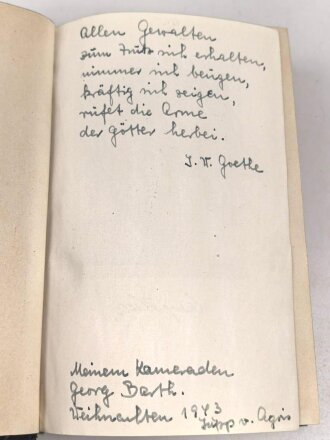 Allen Gewalten
zum Trutz sich erhalten,
nimmer sich beugen,
kräftig sich zeigen,
rufet die Arme
der Götter herbei.
J. W. Goethe
Meinem Kameraden
Georg Barth.
Weihnachten 1943
Supp v. Agris